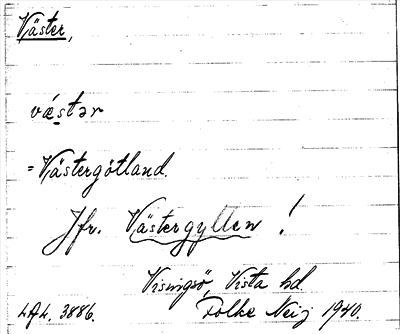 Väster,
væ̀stər
= Västergötland.
Jfr. Västergyllen !
Visingsö, Vista hd.
LAL. 3886. Folke Neij 1940.